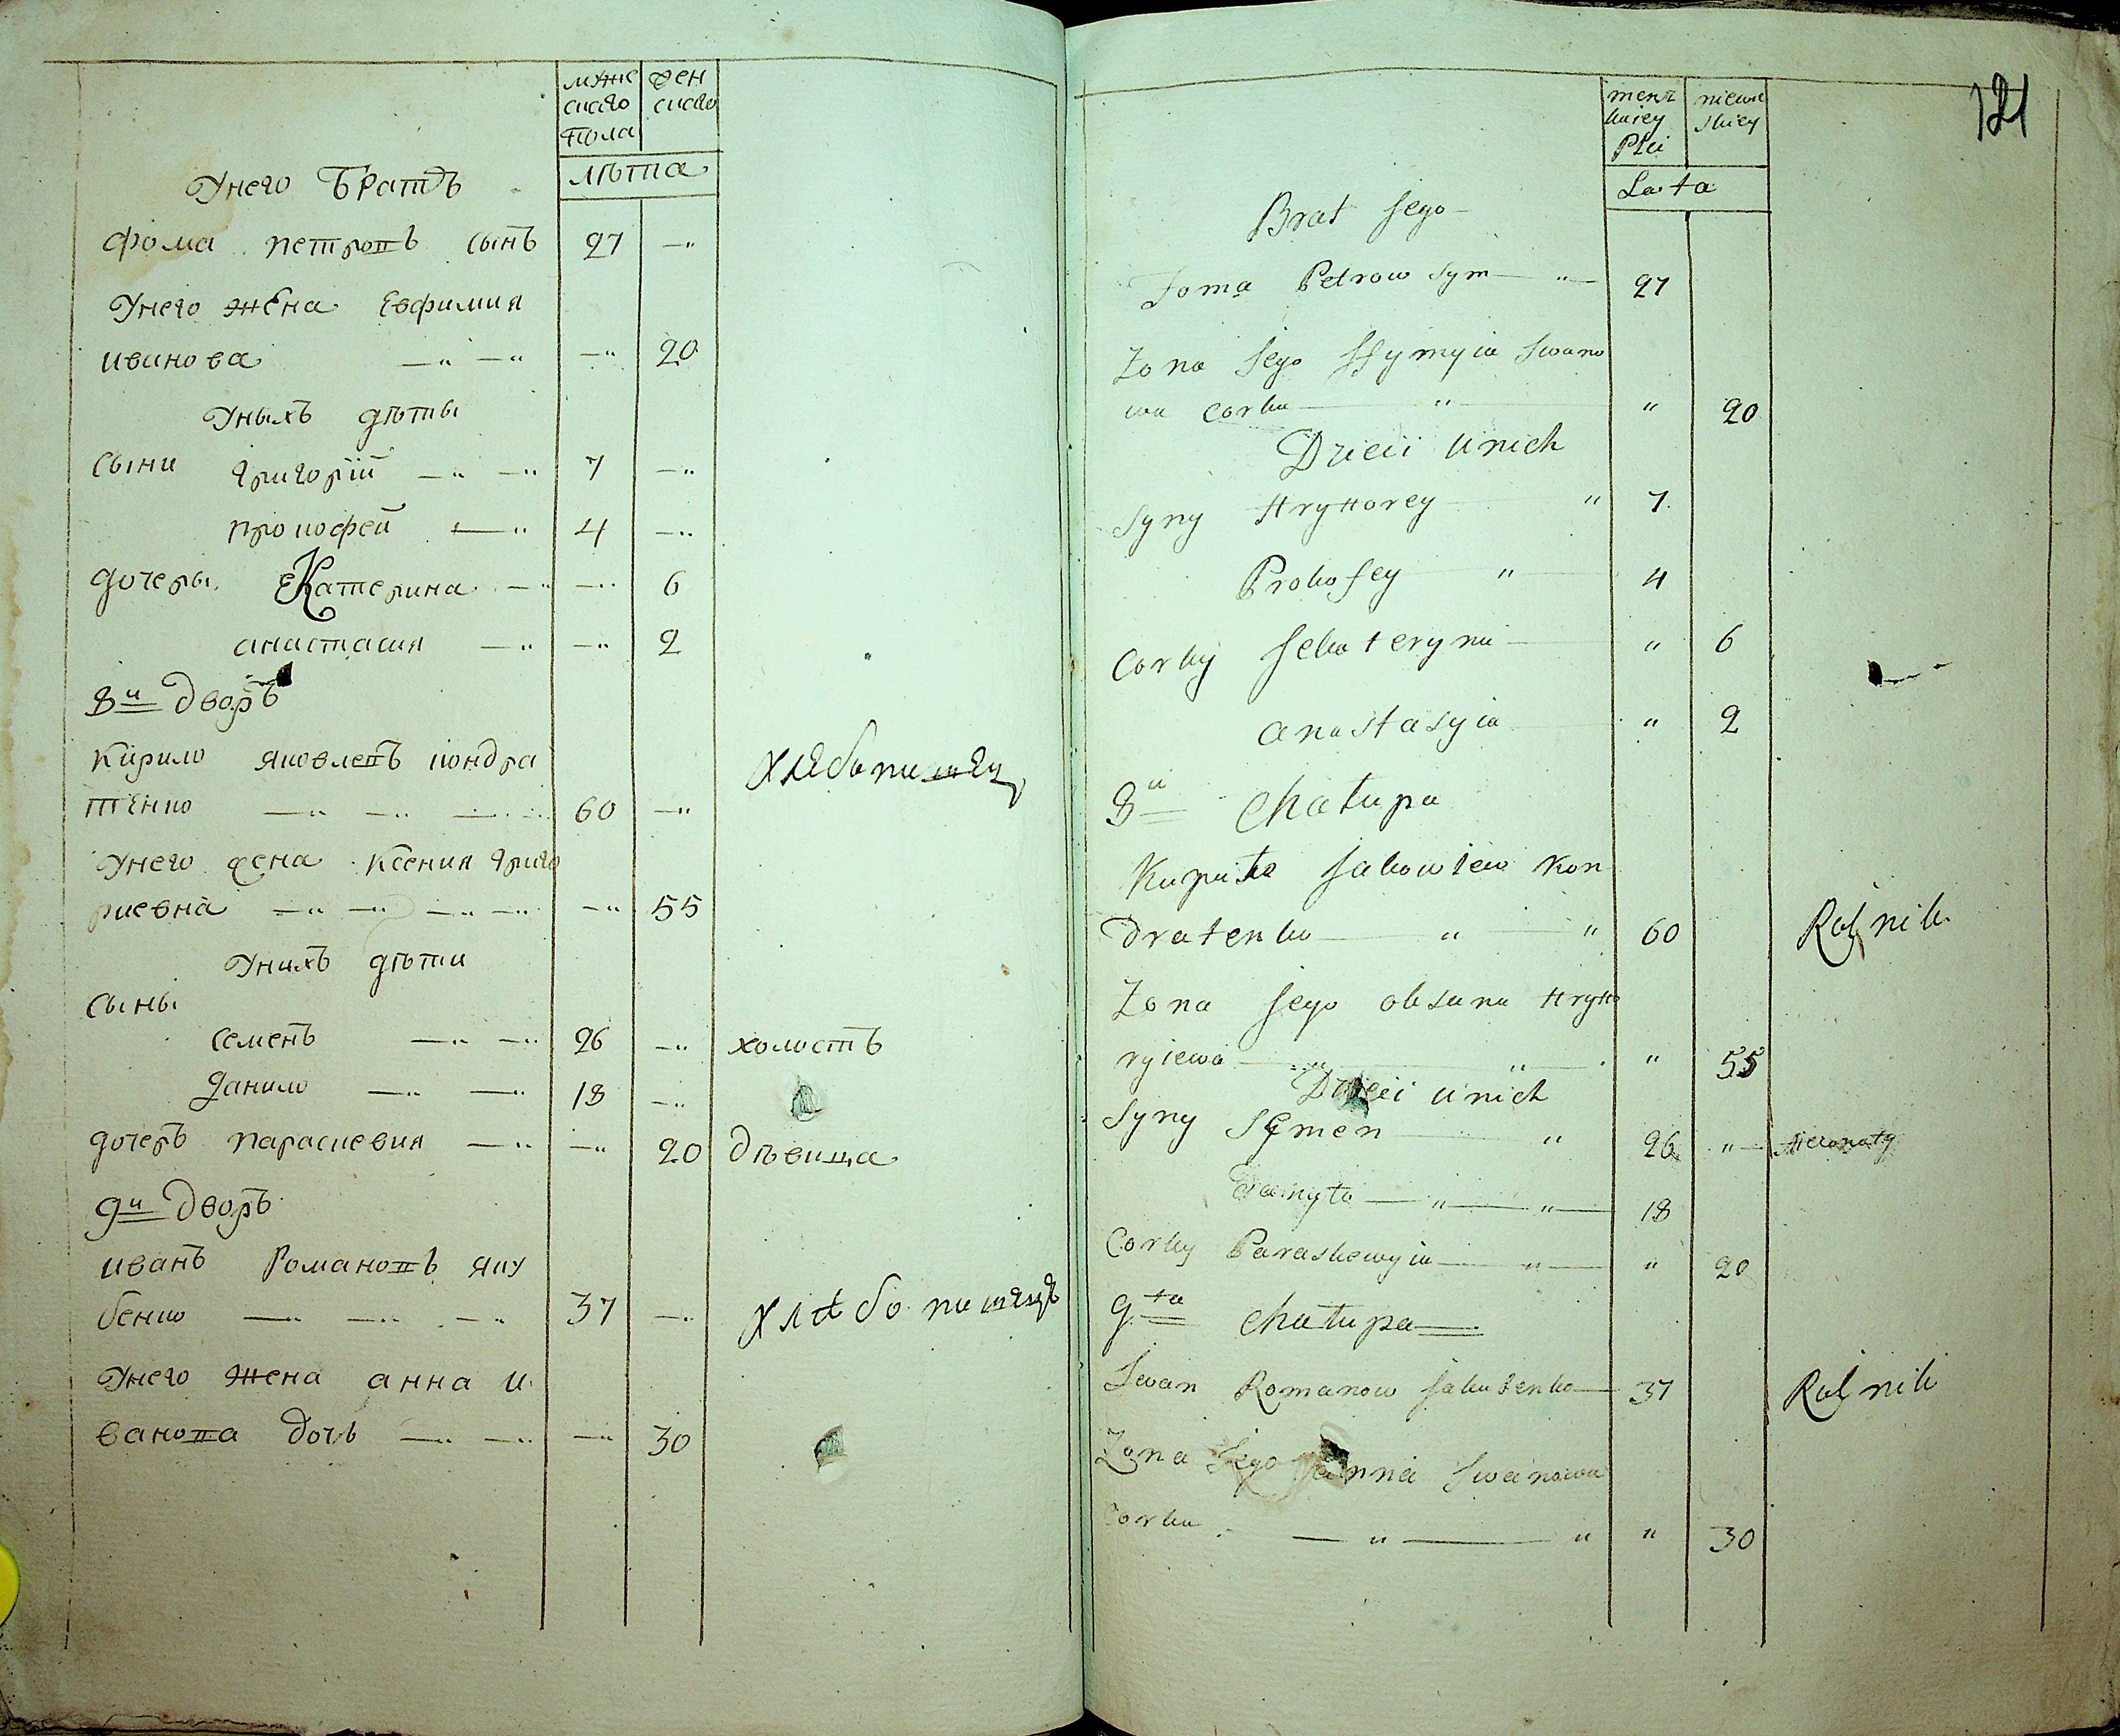 мужс жен
скаго скаго
пола
лѣта
Унего Братъ
Фома Петровъ сынъ 27 —"
Унего жена Евфимия
иванова —" —" —" 20
Уныхъ дѣты
Сыни григорій —" —" 7 —"
прокофей —" 4 —"
дочеры Екатерина —" —" 6
анастасия —" —" 2
8й дворъ
Кирило яковлевъ кондра
тенко —" —" —" 60 —"
Унего жена Ксения григо
риевна —" —" —" —" —" 55
Унихъ дѣти
Сыны
семенъ —" —" 26 —" холостъ
данило —" —" 18 —"
дочеръ параскевия —" —" 20 дѣвица
9й дворъ
иванъ Романовъ яку
бенко —" —" —" 37 —" хлѣбопашецъ
Унего жена анна и
ванова дочъ —" —" —" 30
121
męz niewie
kiey skiey
Płci
Lata
Brat Jego
Foma Petrow syn —"— 27
Zona Jego Jefymyia Iwano
wa corka " " 20
Dzieci U nich
Syny Hryhorey " 7
Prokofey " 4
Corky Jekateryna " 6
Anastasyia " 2
8a Chałupa
Kuryło Jakowlew Kon
dratenko " " 60 Rolnik
Zona Jego oksana Hryho
ryiewa " " " 55
Dzieci U nich
Syny Semen " 26 "
Danyło —"—"— 18
Corky Paraskewyia —"— " 20
9ta Chałupa
Iwan Romanow Jakubenko 37 Rolnik
Zona Jego Hanna Iwanowa
corka — " — " " 30